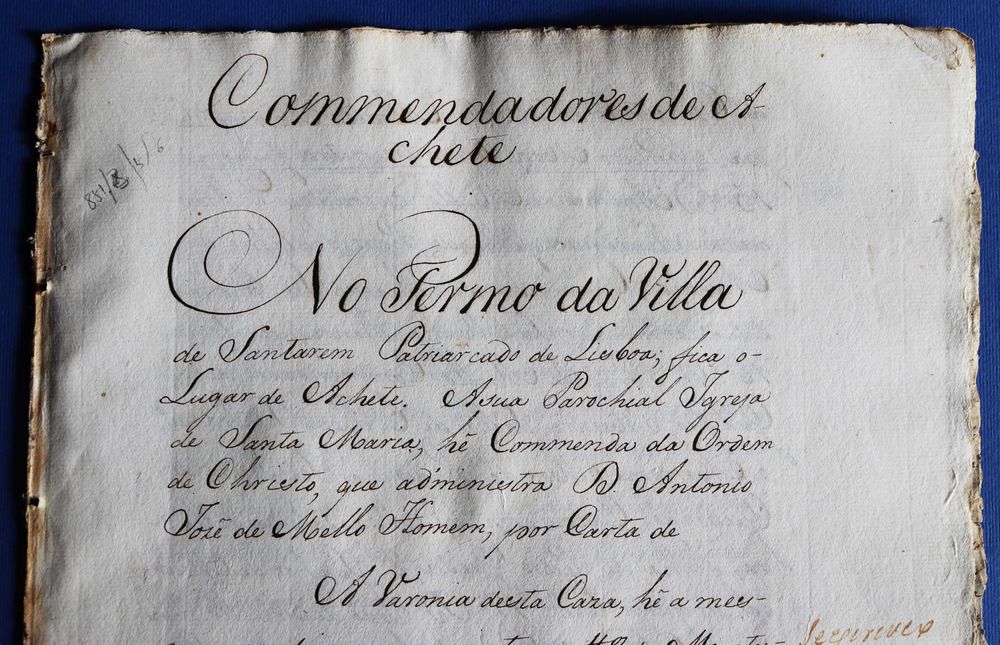 Commendadores de A-
chete
No Termo da Villa
de Santarem Patriarcado de Lisboa; fica o
Lugar de Achete. Asua Parochial Igreja
de Santa Maria, hé Commenda da Ordem
de Christo, que administra D. Antonio
Jozé de Mello Homem, por Carta de
A Varonia desta Caza, hé a mes-